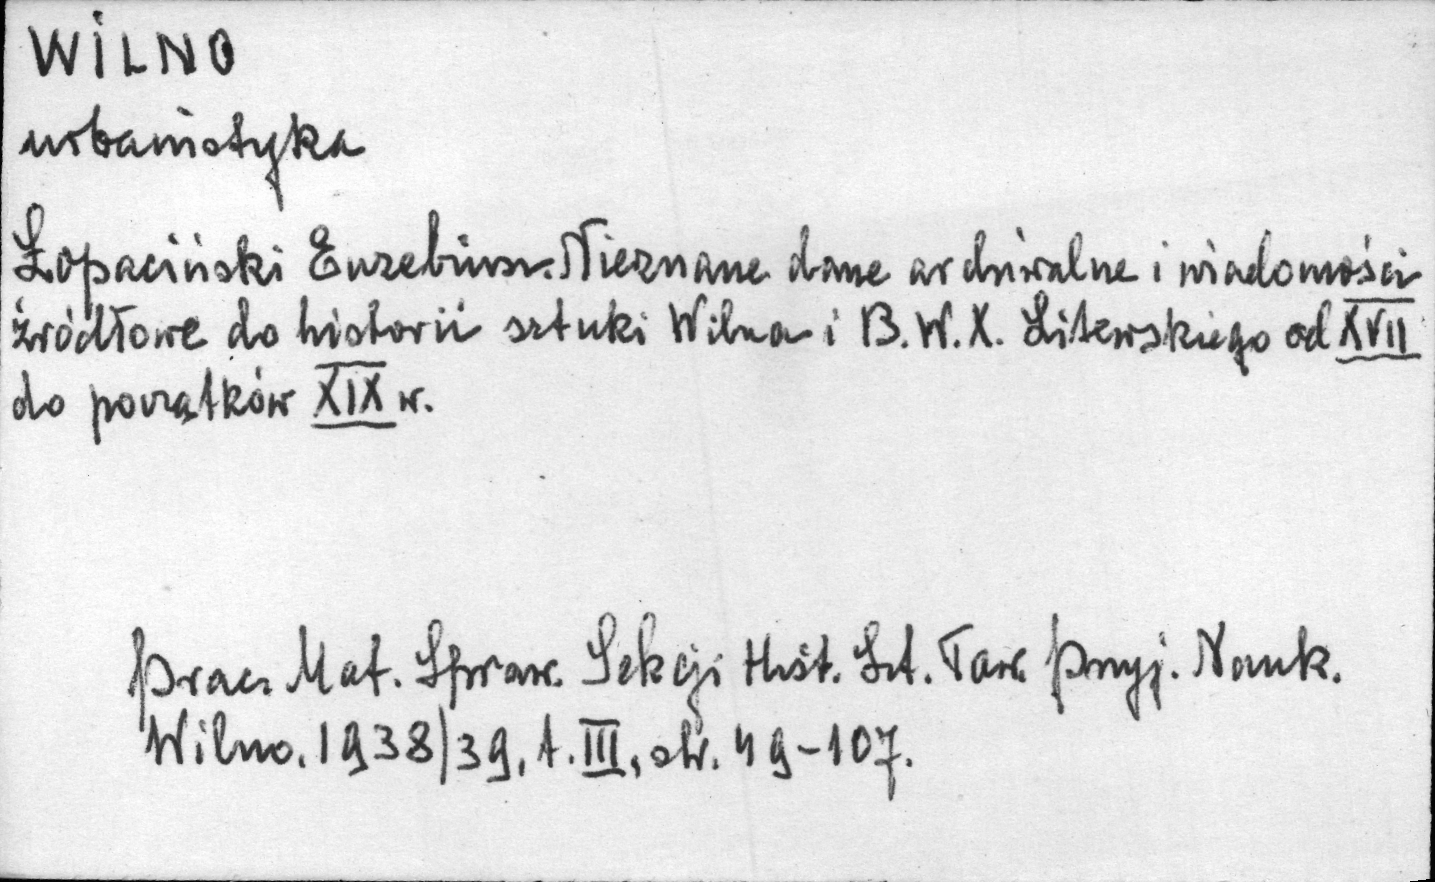 WILNO
urbanistyka
Łopaciński Euzebiusz. Nieznane dane archiwalne i wiadomości
źródłowe do historii sztuki Wilna i B. W. X. Litewskiego od XVII
do początków XIX w.
Prac. Mat. Spraw. Sekcji Hist. Szt. Tow. Przyj. Nauk.
Wilno. 1938/39, t. III, str. 49-107.